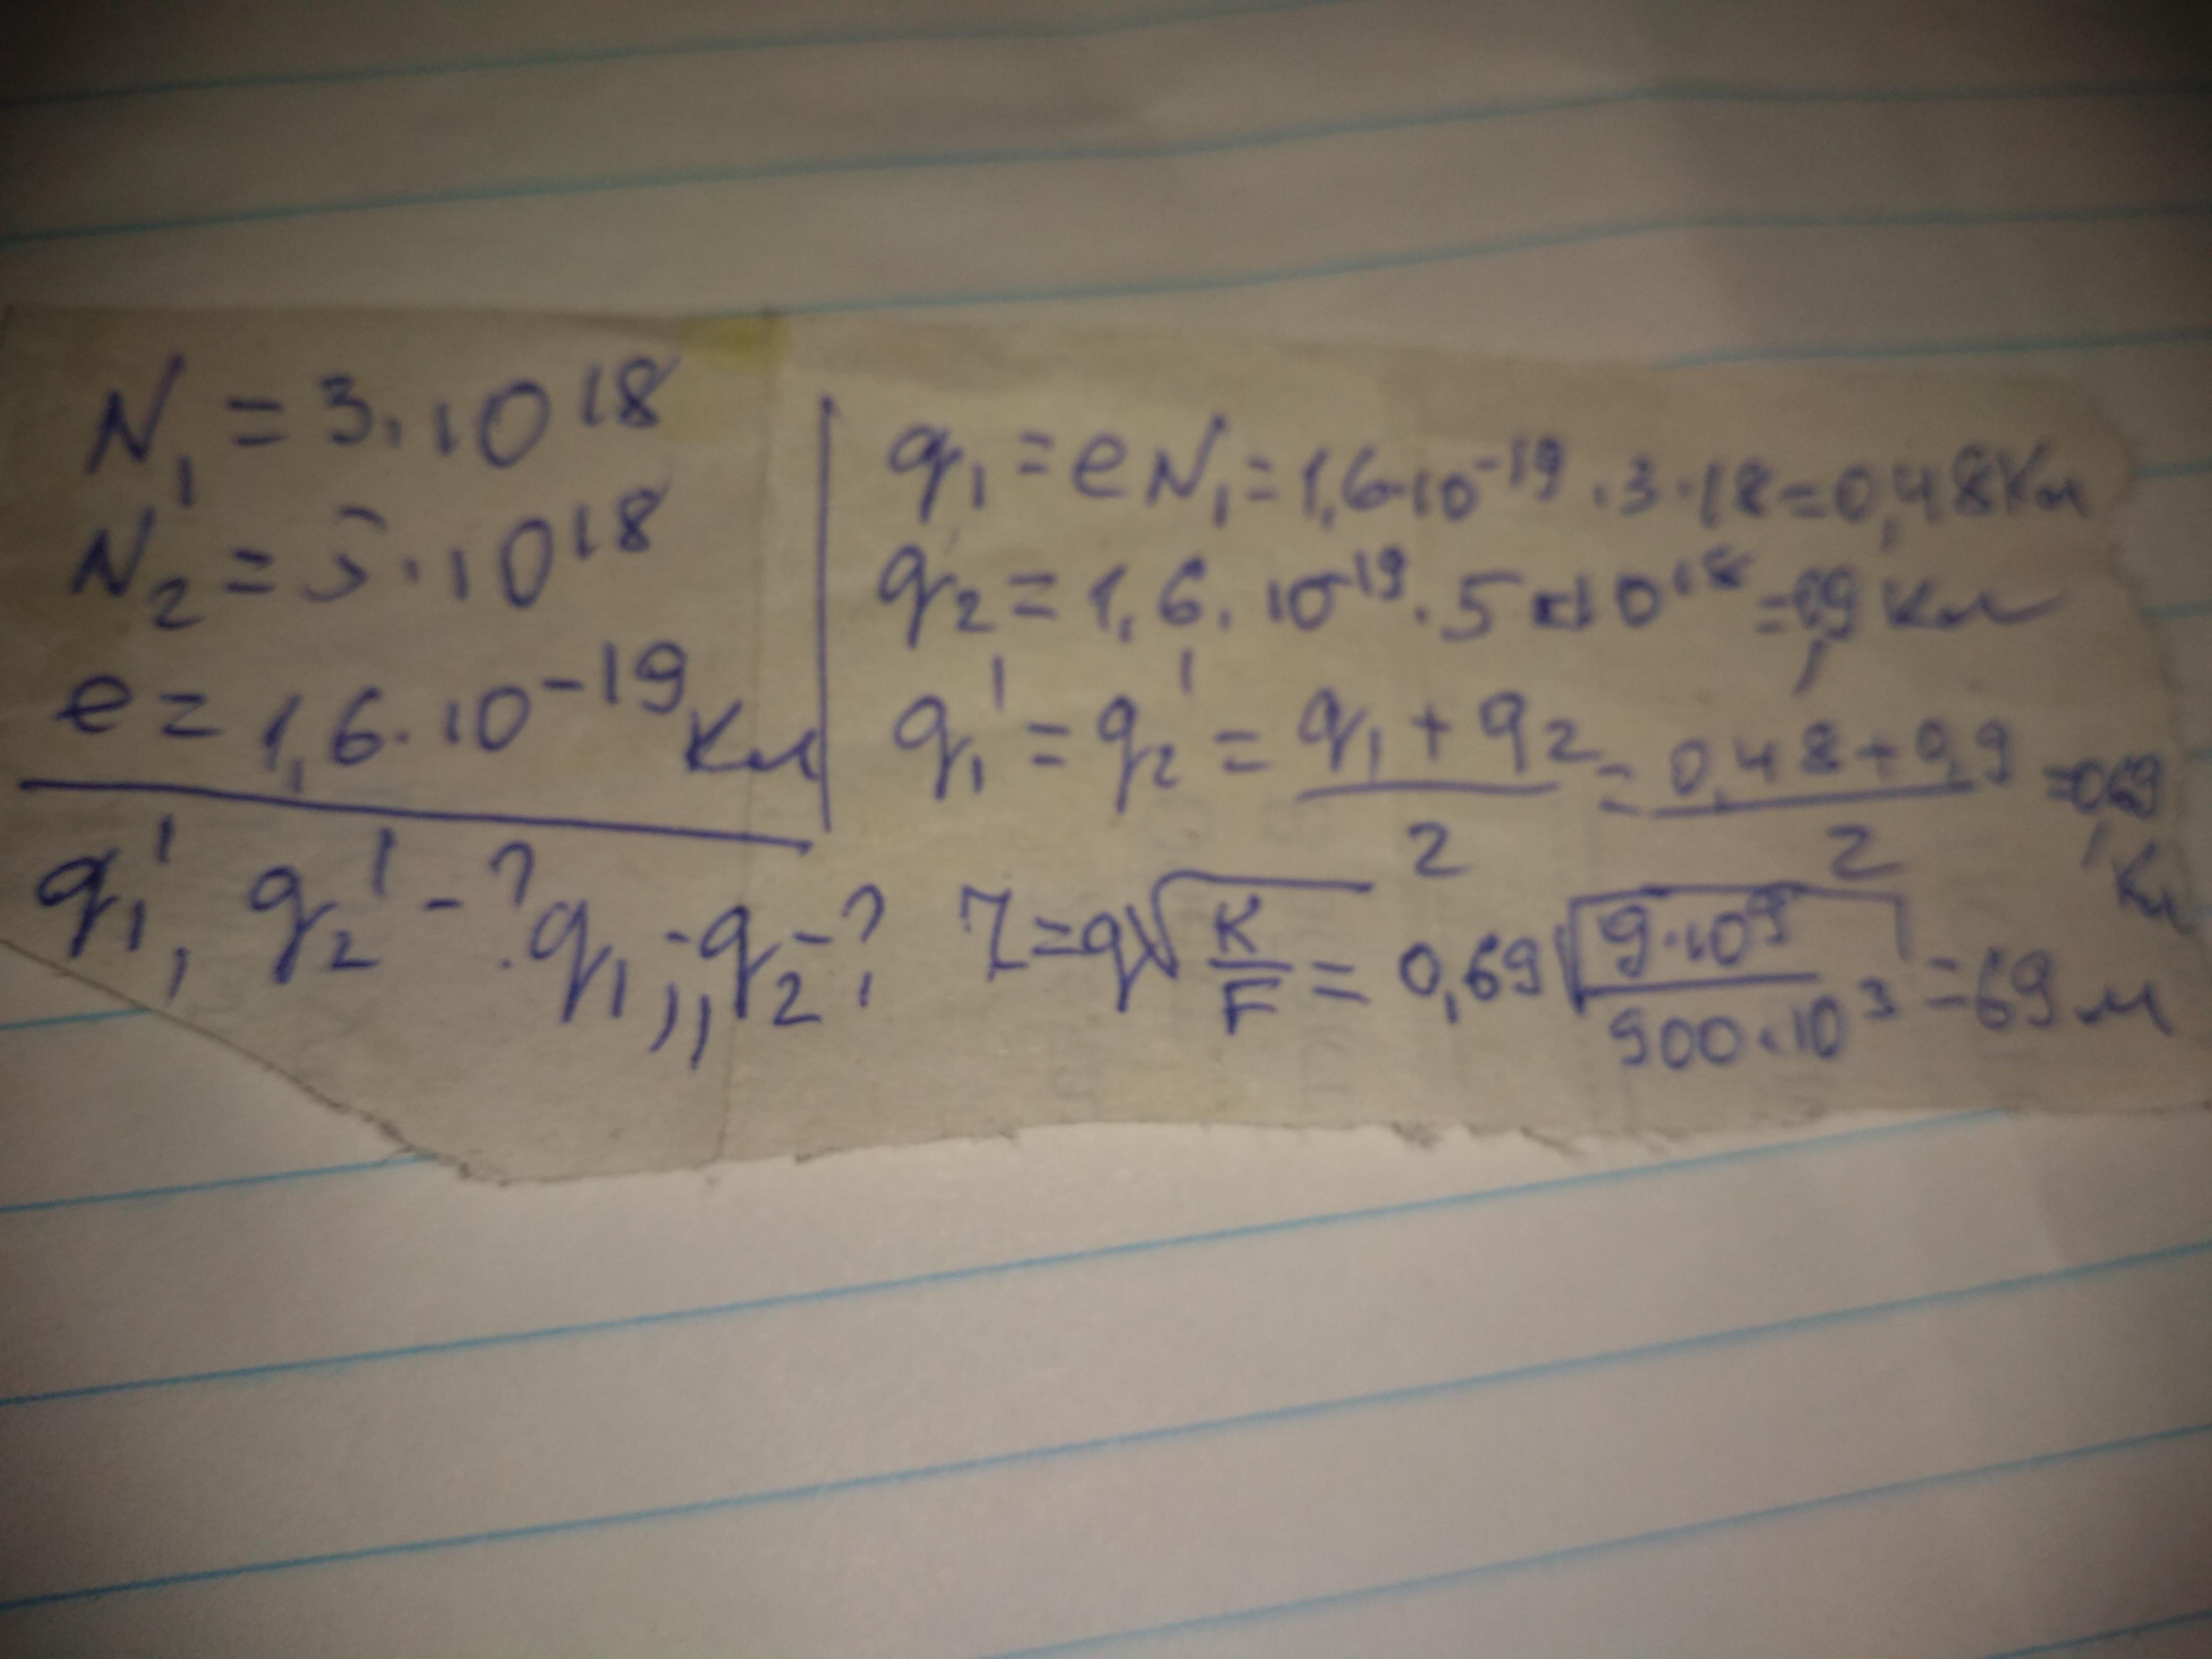 N₁ = 3·10¹⁸
N₂ = 5·10¹⁸
e = 1,6·10⁻¹⁹ Кл
q₁', q₂' - ? q₁,; q₂ - ?
q₁ = eN₁ = 1,6·10⁻¹⁹·3·18 = 0,48 Кл
q₂ = 1,6·10⁻¹⁹·5·10¹⁸ = 0,9 Кл
q₁' = q₂' = (q₁ + q₂)/2 = (0,48 + 0,9)/2 = 0,69 Кл
r = q√(K/F) = 0,69√(9·10⁹/900·10³) = 69 м